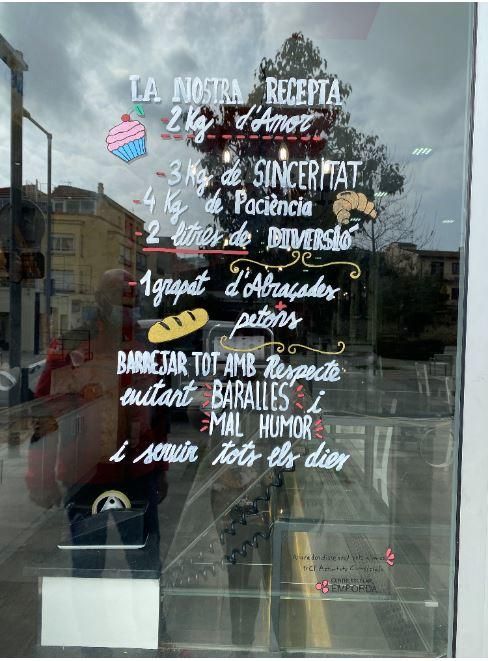 LA NOSTRA RECEPTA
-2Kg d'Amor
-3Kg de SINCERITAT
-4 Kg de Paciència
-2 litres de DIVERSIÓ
-1 grapat d'Abraçades
+
petons
BARREJAR TOT AMB Respecte
evitant BARALLES i
MAL HUMOR
i servir tots els dies
CENTRE ESCOLAR
EMPORDÀ